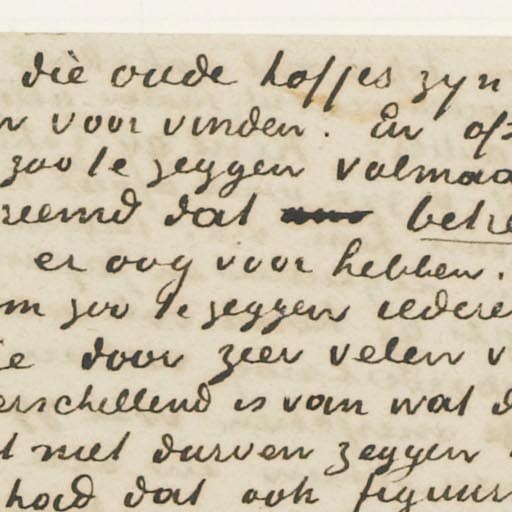 diè oude hofjes zyn
n voor vinden. En of
zoo te zeggen volmaa
reemd dat betre
er oog voor hebben.
m zoo te zeggen iedere
ie door zeer velen v
erschillend is van wat d
t niet durven zeggen
had dat ook figuur